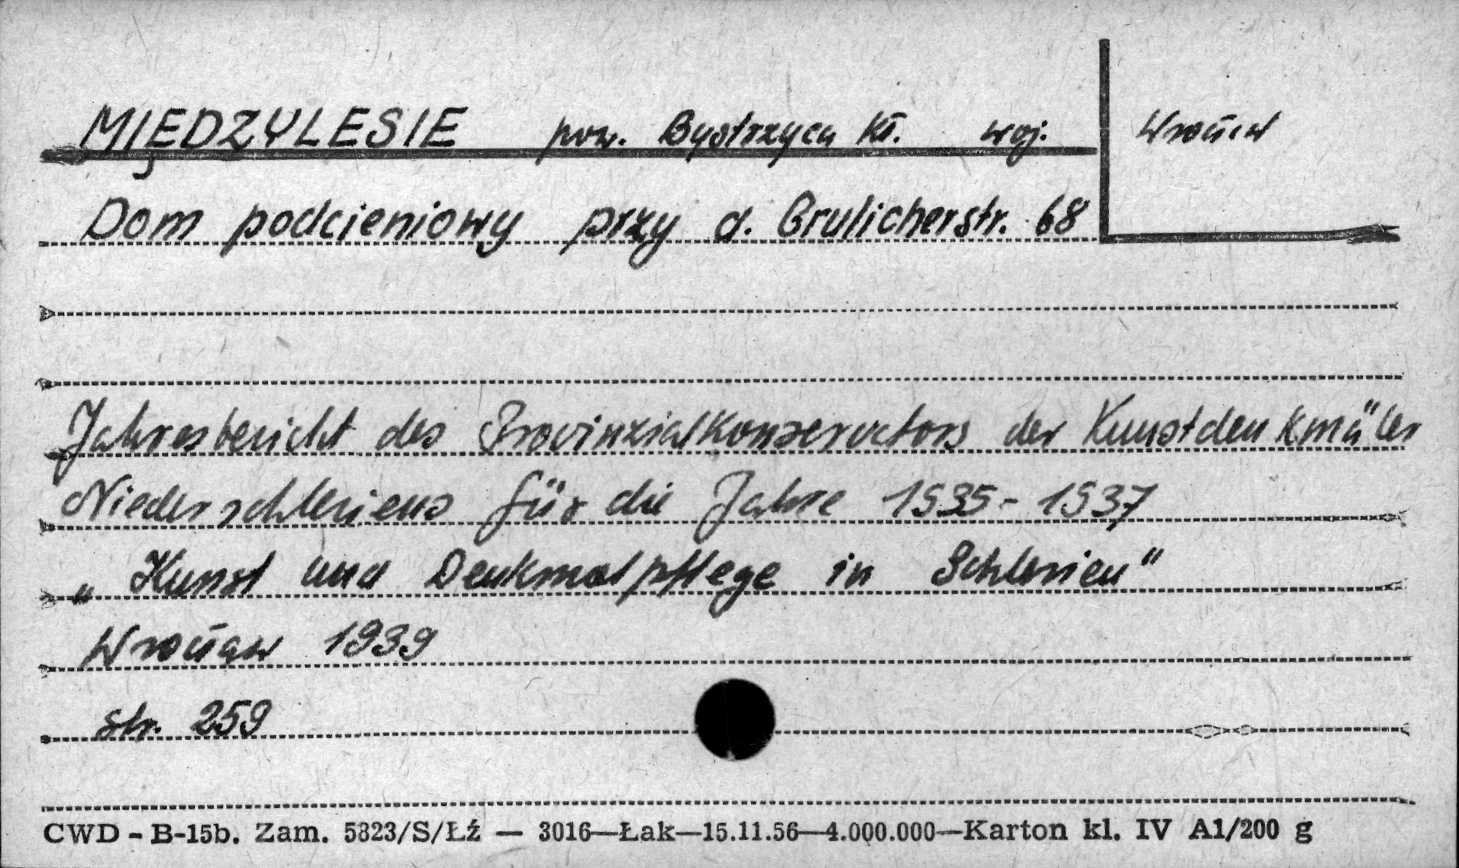 MIĘDZYLESIE pow. Bystrzyca Kł. woj. Wrocław
Dom podcieniowy przy d. Grulicherstr. 68
Jahresbericht des Provinzialkonservators der Kunstdenkmäler
Niederschlesiens für die Jahre 1935-1937
„Kunst und Denkmalpflege in Schlesien"
Wrocław 1939
str. 259
CWD - B-15b. Zam. 5823/S/Łź — 3016—Łak—15.11.56—4.000.000—Karton kl. IV A1/200 g